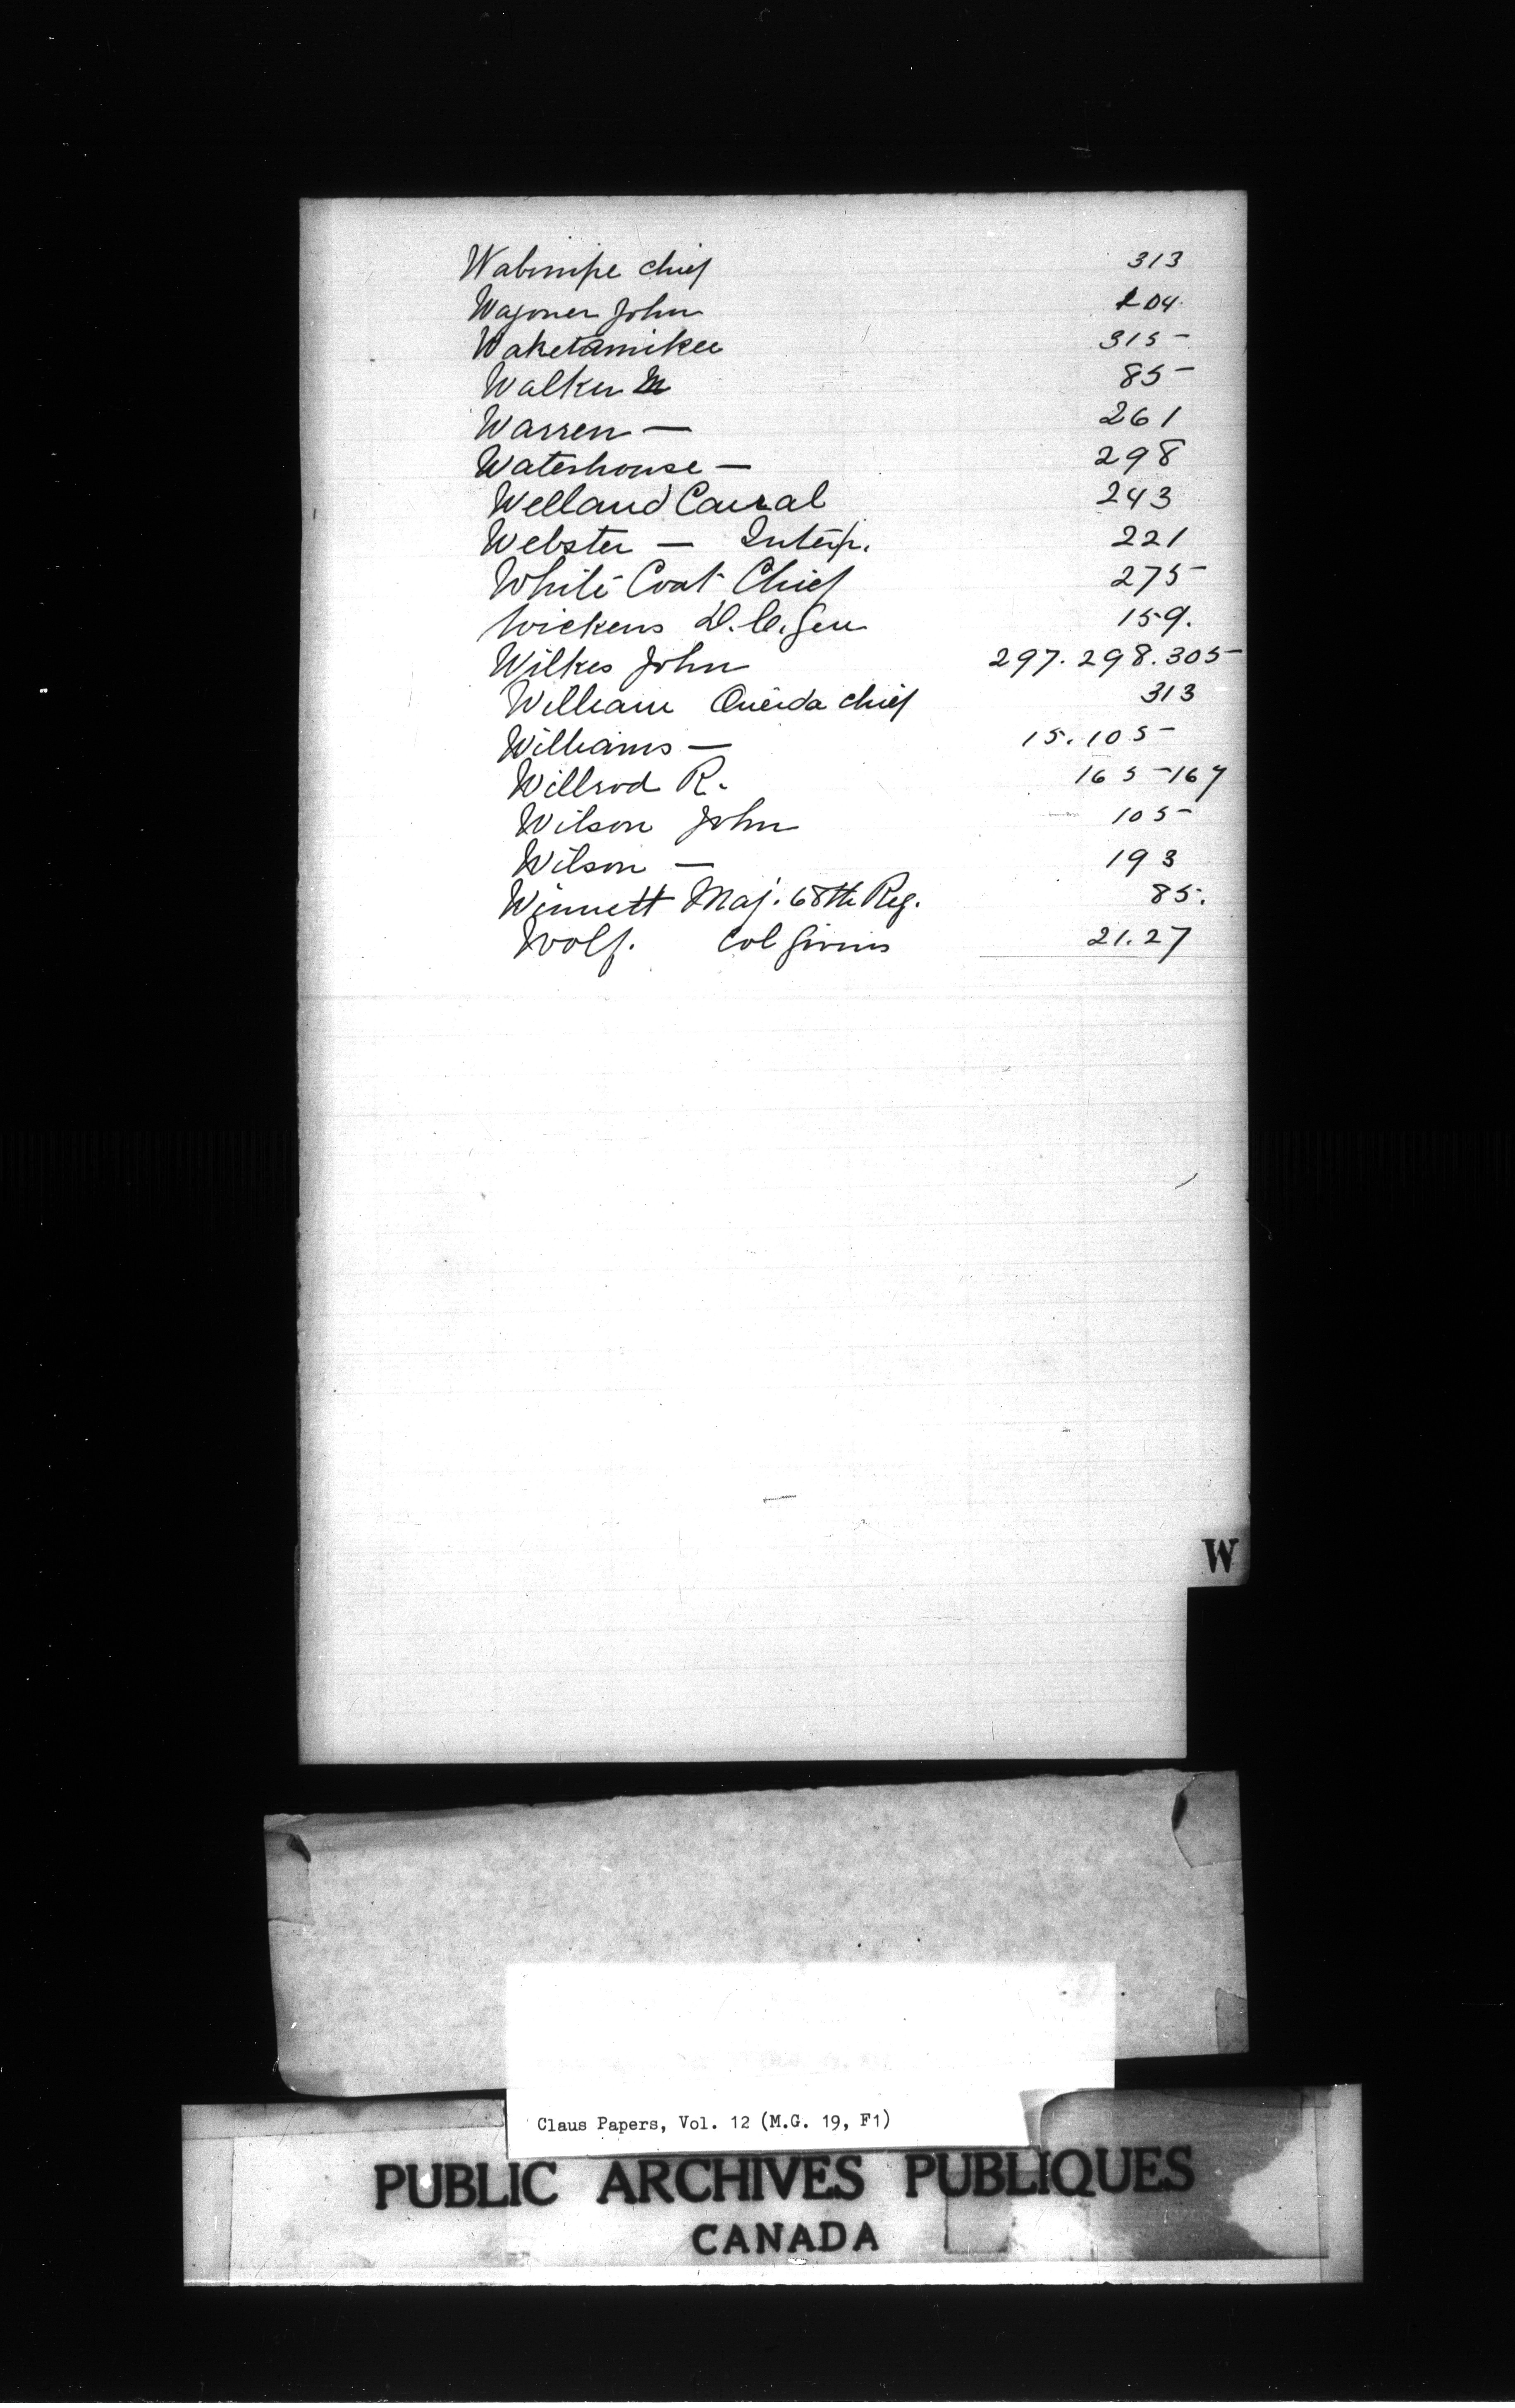 Wabinipe chief 313
Wagoner John 204.
Waketamikee 315
Walker M 85
Warren — 261
Waterhouse — 298
Welland Canal 243
Webster — Interp. 221
White Coat Chief 275
Wickens D. C. Gen 159.
Wilkes John 297. 298. 305
William Oneida chief 313
Williams — 15. 105
Willrod R. 165-167
Wilson John 105
Wilson — 193
Winnett Maj. 68th Reg. 85.
Wolf. Col Givins 21. 27
W
Claus Papers, Vol. 12 (M.G. 19, F1)
PUBLIC ARCHIVES PUBLIQUES
CANADA